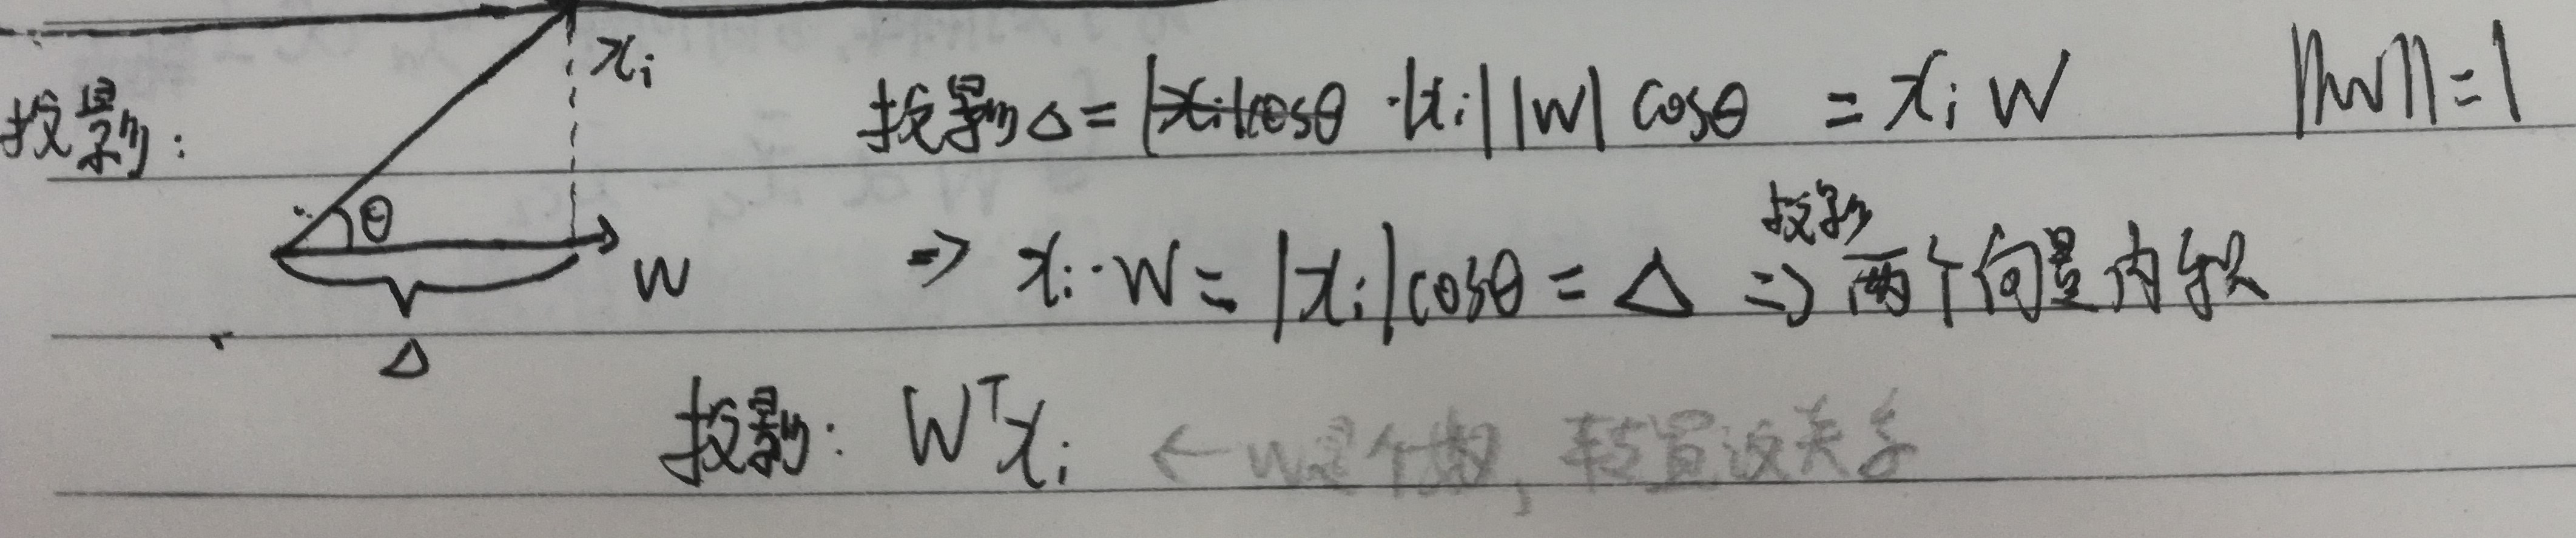 投影:
x_i
θ
W
Δ
投影Δ = |x_i|cosθ · |x_i| |W| cosθ = x_i W ||W|| = 1
投影
⇒ x_i · W = |x_i| cosθ = Δ ⇒ 两个向量内积
投影: W^T x_i ← W是个数, 转置没关系